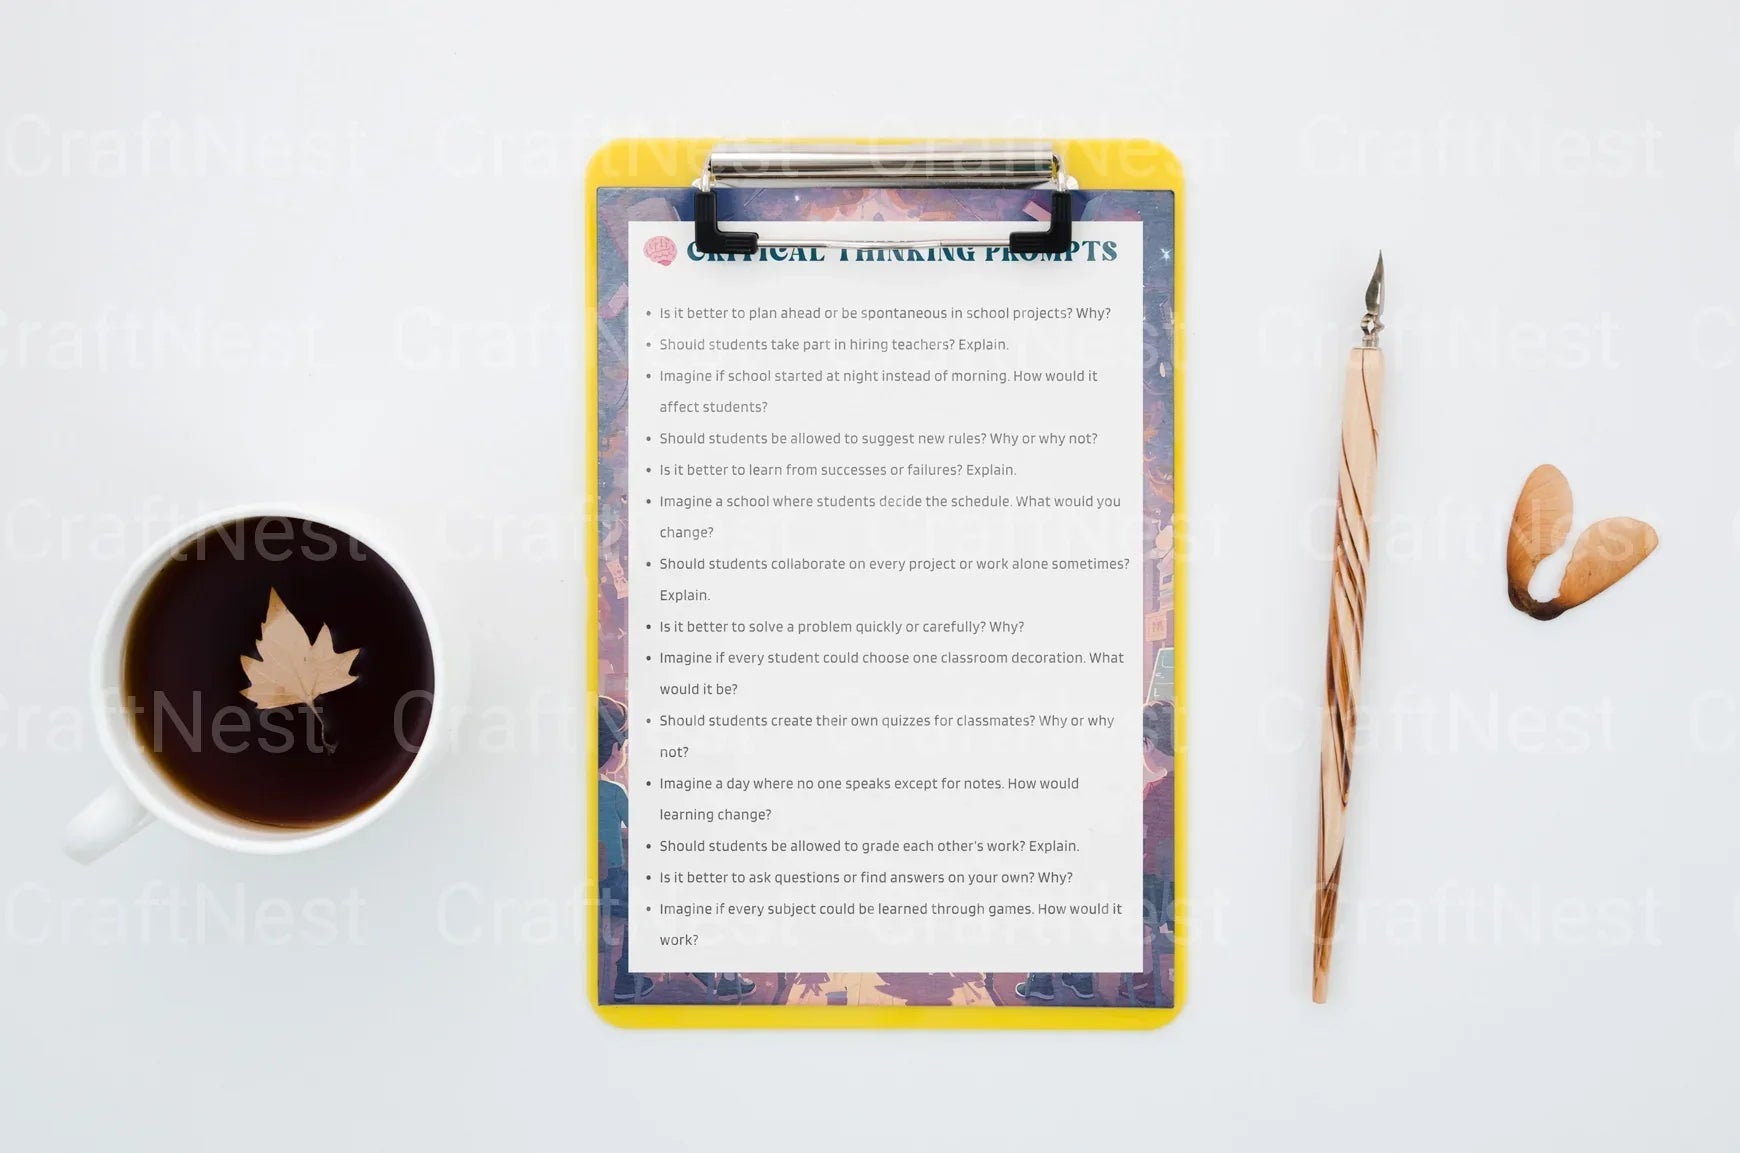 CRITICAL THINKING PROMPTS
• Is it better to plan ahead or be spontaneous in school projects? Why?
• Should students take part in hiring teachers? Explain.
• Imagine if school started at night instead of morning. How would it
affect students?
• Should students be allowed to suggest new rules? Why or why not?
• Is it better to learn from successes or failures? Explain.
• Imagine a school where students decide the schedule. What would you
change?
• Should students collaborate on every project or work alone sometimes?
Explain.
• Is it better to solve a problem quickly or carefully? Why?
• Imagine if every student could choose one classroom decoration. What
would it be?
• Should students create their own quizzes for classmates? Why or why
not?
• Imagine a day where no one speaks except for notes. How would
learning change?
• Should students be allowed to grade each other's work? Explain.
• Is it better to ask questions or find answers on your own? Why?
• Imagine if every subject could be learned through games. How would it
work?
CraftNest CraftNest CraftNest CraftNest
CraftNest CraftNest CraftNest CraftNest
CraftNest CraftNest CraftNest CraftNest
CraftNest CraftNest CraftNest CraftNest
CraftNest CraftNest CraftNest CraftNest